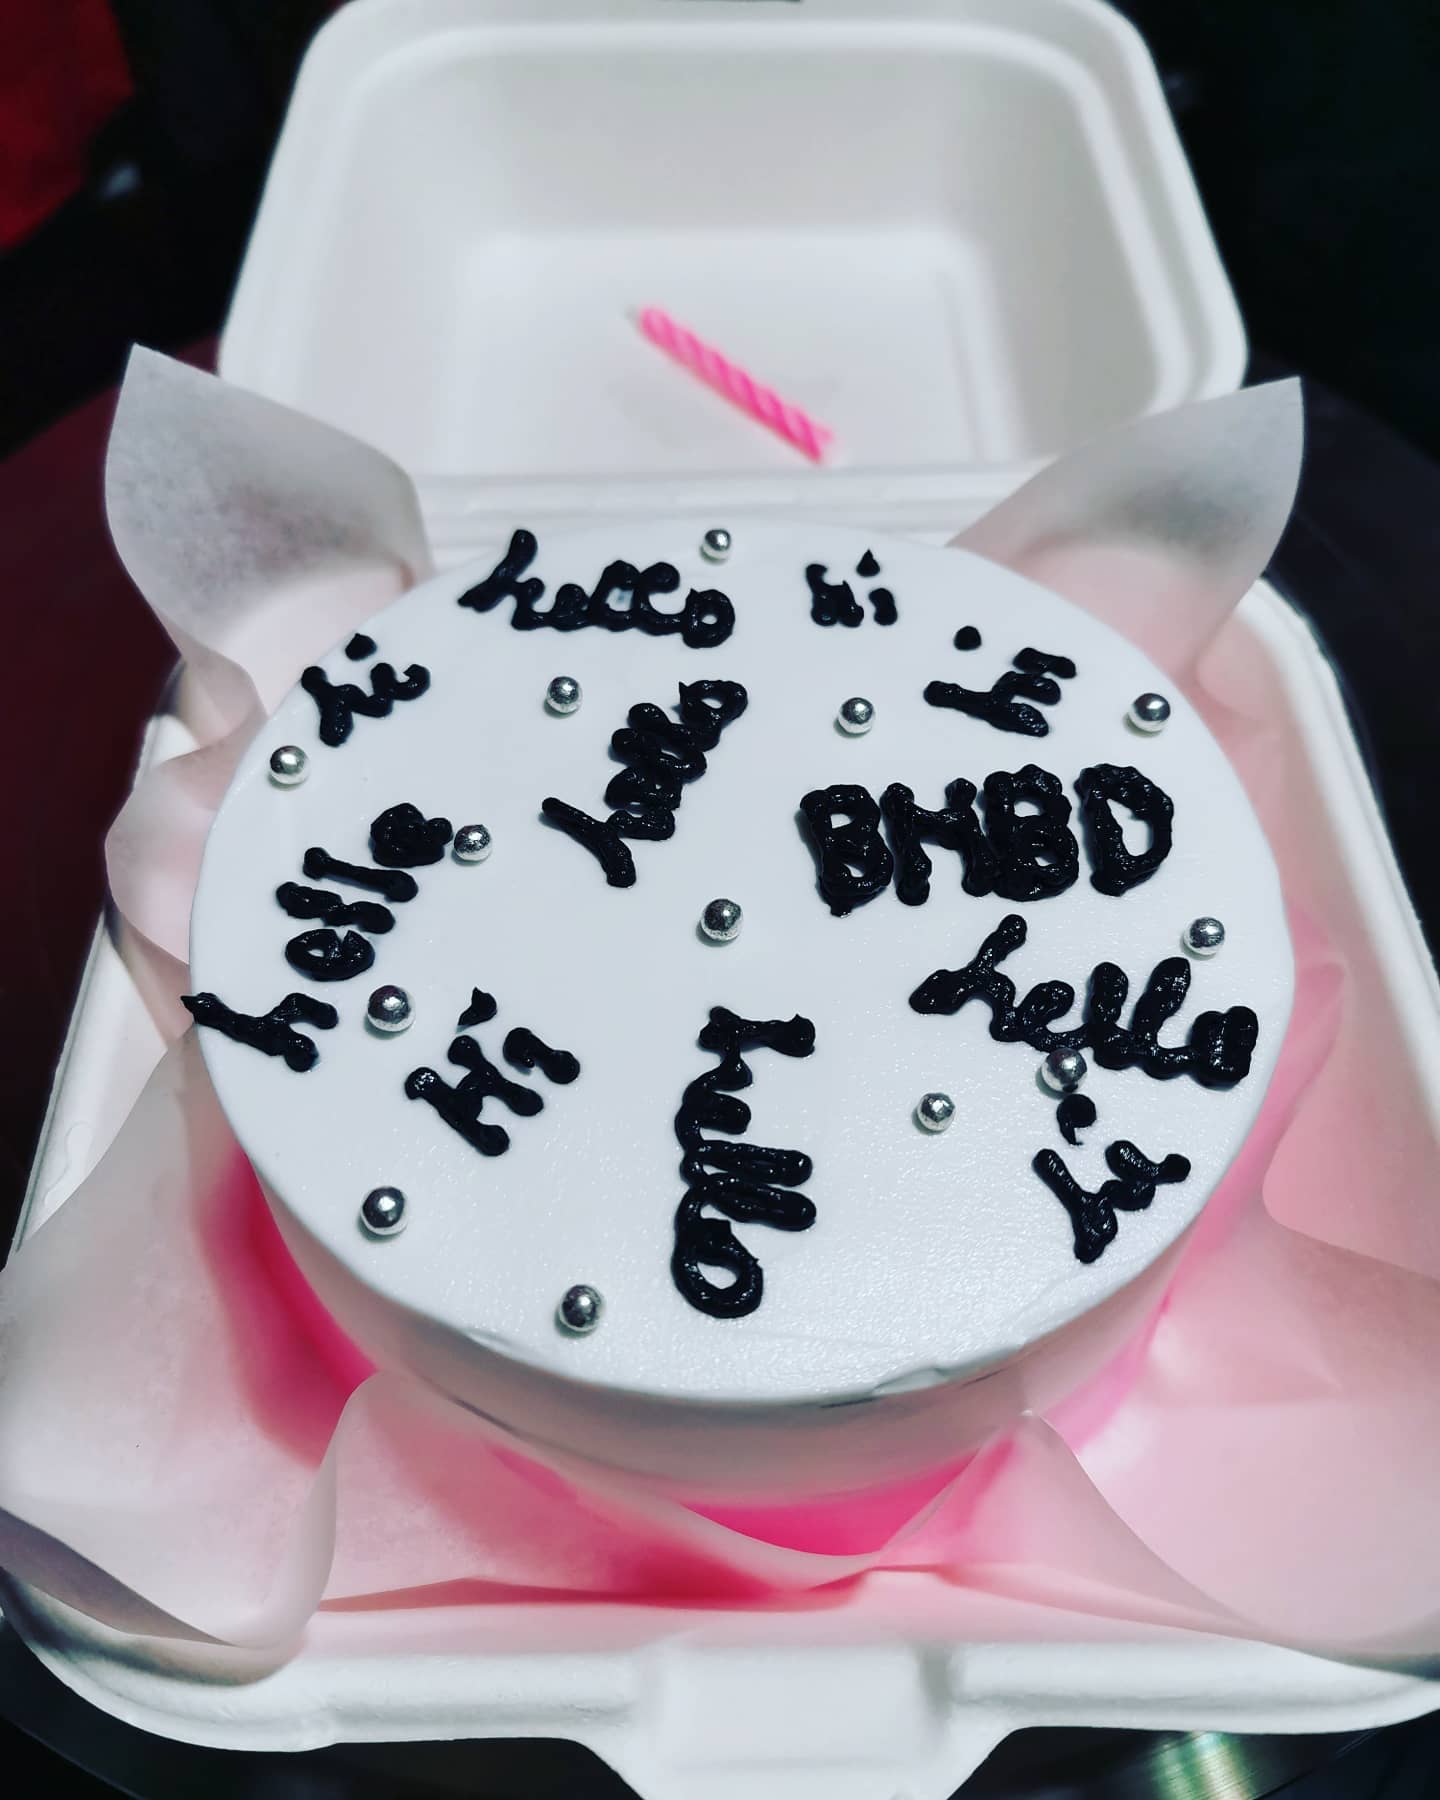 hello
hi
hi
hi
hello
BHBD
hello
hello
Hi
hello
hi